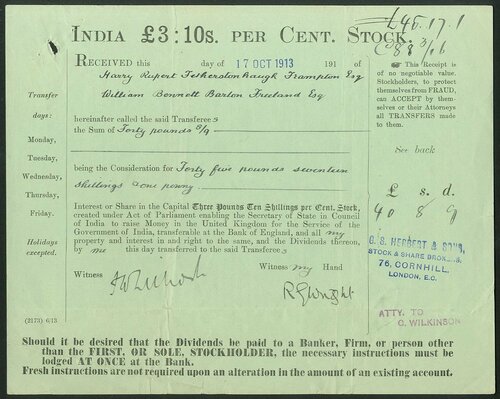 £45.17.1
INDIA £3:10s. PER CENT. STOCK.
88 3/16
RECEIVED this day of 17 OCT 1913 191 of
Harry Rupert Fetherstonhaugh Frampton Esq
William Bennett Barton Freeland Esq
hereinafter called the said Transferees
the Sum of Forty pounds 8/9
being the Consideration for Forty five pounds seventeen
shillings & one penny
Interest or Share in the Capital Three Pounds Ten Shillings per Cent. Stock,
created under Act of Parliament enabling the Secretary of State in Council
of India to raise Money in the United Kingdom for the Service of the
Government of India, transferable at the Bank of England, and all my
property and interest in and right to the same, and the Dividends thereon,
by me this day transferred to the said Transferees
Witness Witness my Hand
R G Wright
Transfer
days:
Monday,
Tuesday,
Wednesday,
Thursday,
Friday.
Holidays
excepted.
(2173) 6/13
☞ This Receipt is
of no negotiable value.
Stockholders, to protect
themselves from FRAUD,
can ACCEPT by them-
selves or their Attorneys
all TRANSFERS made
to them.
See back
£ s. d.
40 8 9
G. S. HERBERT & SONS,
STOCK & SHARE BROKERS,
76, CORNHILL,
LONDON, E.C.
ATTY. TO
C. WILKINSON
Should it be desired that the Dividends be paid to a Banker, Firm, or person other
than the FIRST, OR SOLE, STOCKHOLDER, the necessary instructions must be
lodged AT ONCE at the Bank.
Fresh instructions are not required upon an alteration in the amount of an existing account.